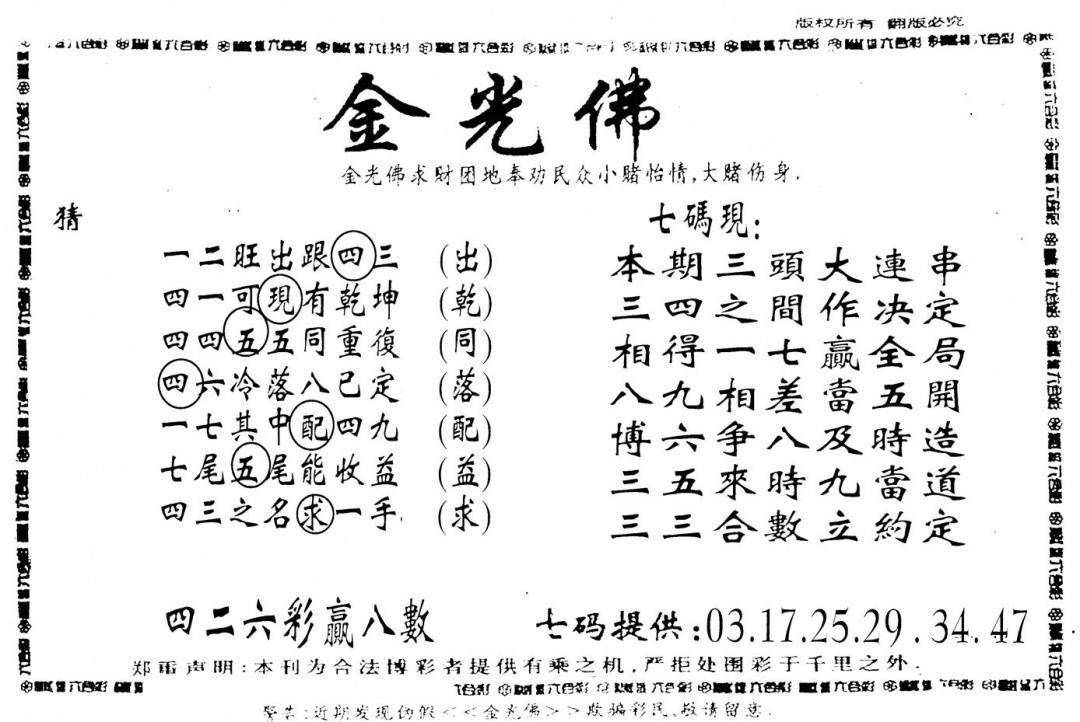 版权所有 翻版必究
金光佛
金光佛求财团地奉劝民众小赌怡情,大赌伤身.
猜
一二旺出跟四三 (出)
四一可現有乾坤 (乾)
四四五五同重復 (同)
四六冷落八已定 (落)
一七其中配四九 (配)
七尾五尾能收益 (益)
四三之名求一手 (求)
七碼現:
本期三頭大連串
三四之間作决定
相得一七贏全局
八九相差當五開
博六爭八及時造
三五來時九當道
三三合數立約定
四二六彩贏八數
七码提供:03.17.25.29.34.47
郑重声明:本刊为合法博彩者提供有乘之机,严拒处围彩于千里之外.
警告:近期发现伪假<<金光佛>>欺骗彩民,敬请留意.